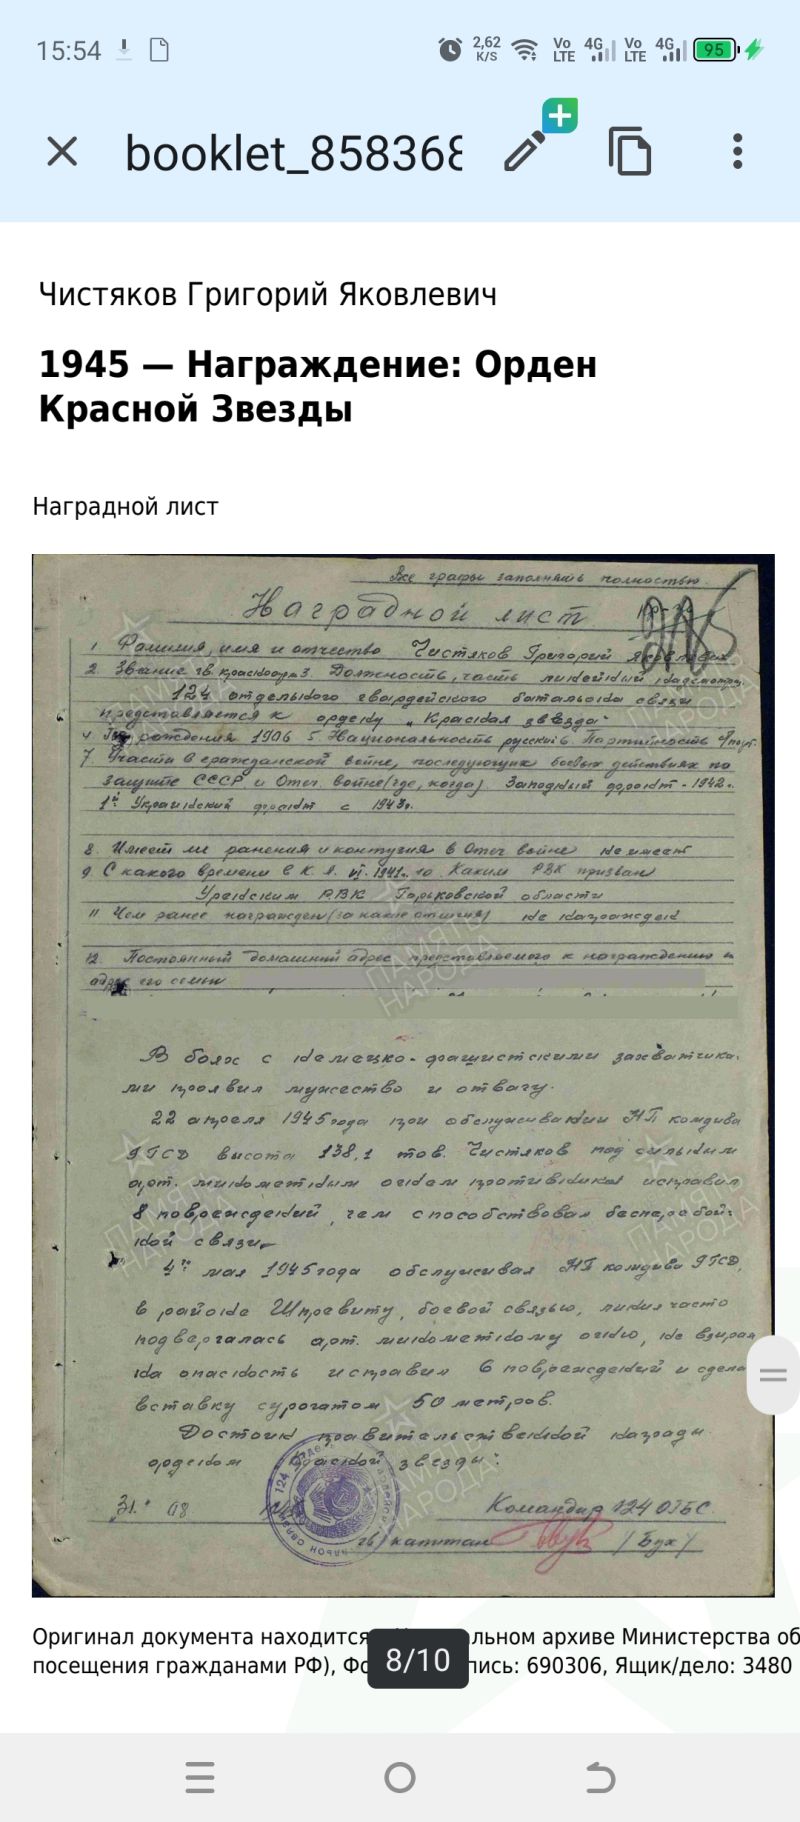 15:54
2,62 K/S Vo LTE 4G Vo LTE 4G 95
booklet_858368
Чистяков Григорий Яковлевич
1945 — Награждение: Орден
Красной Звезды
Наградной лист
Все графы заполнять полностью.
Наградной лист
1. Фамилия, имя и отчество Чистяков Григорий Яковлевич
2. Звание гв. красноарм 3. Должность, часть линейный надсмотрщ.
124 отдельного гвардейского батальона связи
представляется к ордену „Красная звезда"
4. Год рождения 1906 5. Национальность русский 6. Партийность
7. Участи в гражданской войне, последующих боевых действиях по
защите СССР и Отеч. войне (где, когда) Западный фронт - 1942г.
1й Украинский фронт с 1943г.
8. Имеет ли ранения и контузия в Отеч войне не имеет
9. С какого времени в К. А. VI. 1941г. 10 Каким РВК призван
Уренским РВК Горьковской области
11 Чем ранее награжден (за какие отличия) не награжден
12. Постоянный домашний адрес представляемого к награждению и
адрес его семьи
ПАМЯТЬ НАРОДА
В боях с немецко-фашистскими захватчика-
ми проявил мужество и отвагу.
22 апреля 1945 года при обслуживании НП комдива
9 ГСД высота 138,1 тов. Чистяков под сильным
арт. минометным огнем противника исправил
8 повреждений, чем способствовал бесперебой-
ной связи.
4го мая 1945 года обслуживая НП комдива 9 ГСД,
в районе Шпревитц, боевой связью, линия часто
подвергалась арт. минометному огню, не взирая
на опасность исправил 6 повреждений и сделал
вставку сурогатом 50 метров.
Достоин правительственной награды
орденом „Красной звезды".
31. 08
Командир 124 ОГБС.
гв. капитан / Бух /
Оригинал документа находится альном архиве Министерства об
посещения гражданами РФ), Фо пись: 690306, Ящик/дело: 3480
8/10